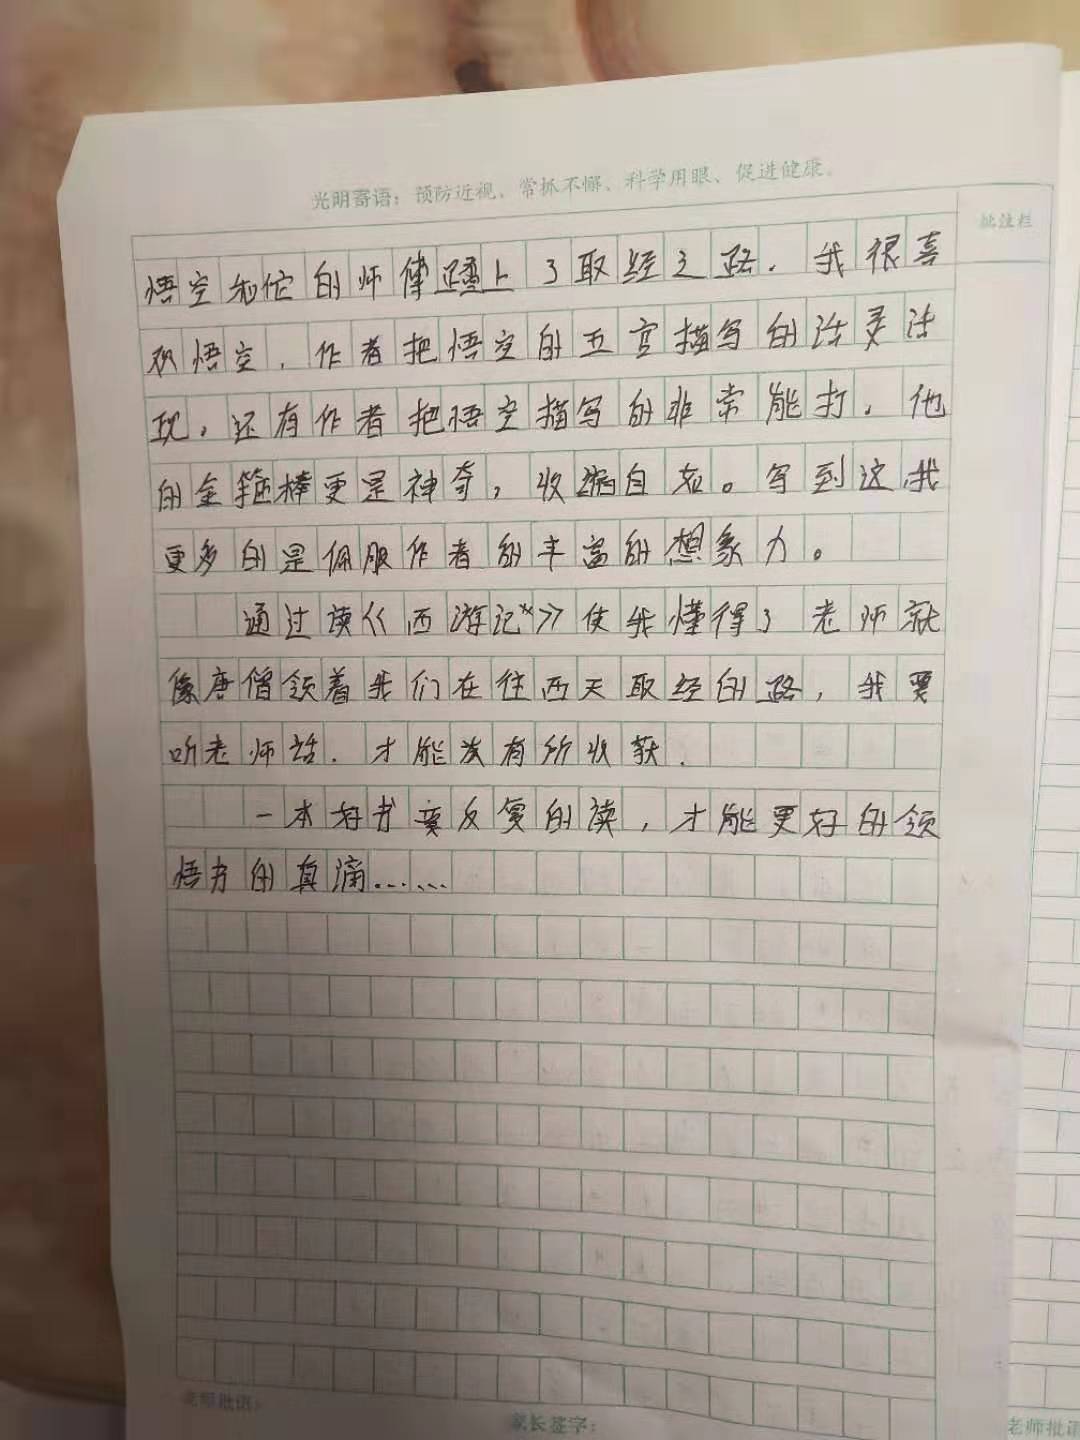 光明寄语：预防近视、常抓不懈、科学用眼、促进健康。
批注栏
悟空和他的师傅踏上了取经之路．我很喜
欢悟空．作者把悟空的五官描写的活灵活
现，还有作者把悟空描写的非常能打，他
的金箍棒更是神奇，收缩自如。写到这我
更多的是佩服作者的丰富的想象力。
通过读《西游记》使我懂得了老师就
像唐僧领着我们在往西天取经的路，我要
听老师话．才能发有所收获．
一本好书要反复的读，才能更好的领
悟书的真谛……
老师批语：
家长签字：
老师批语